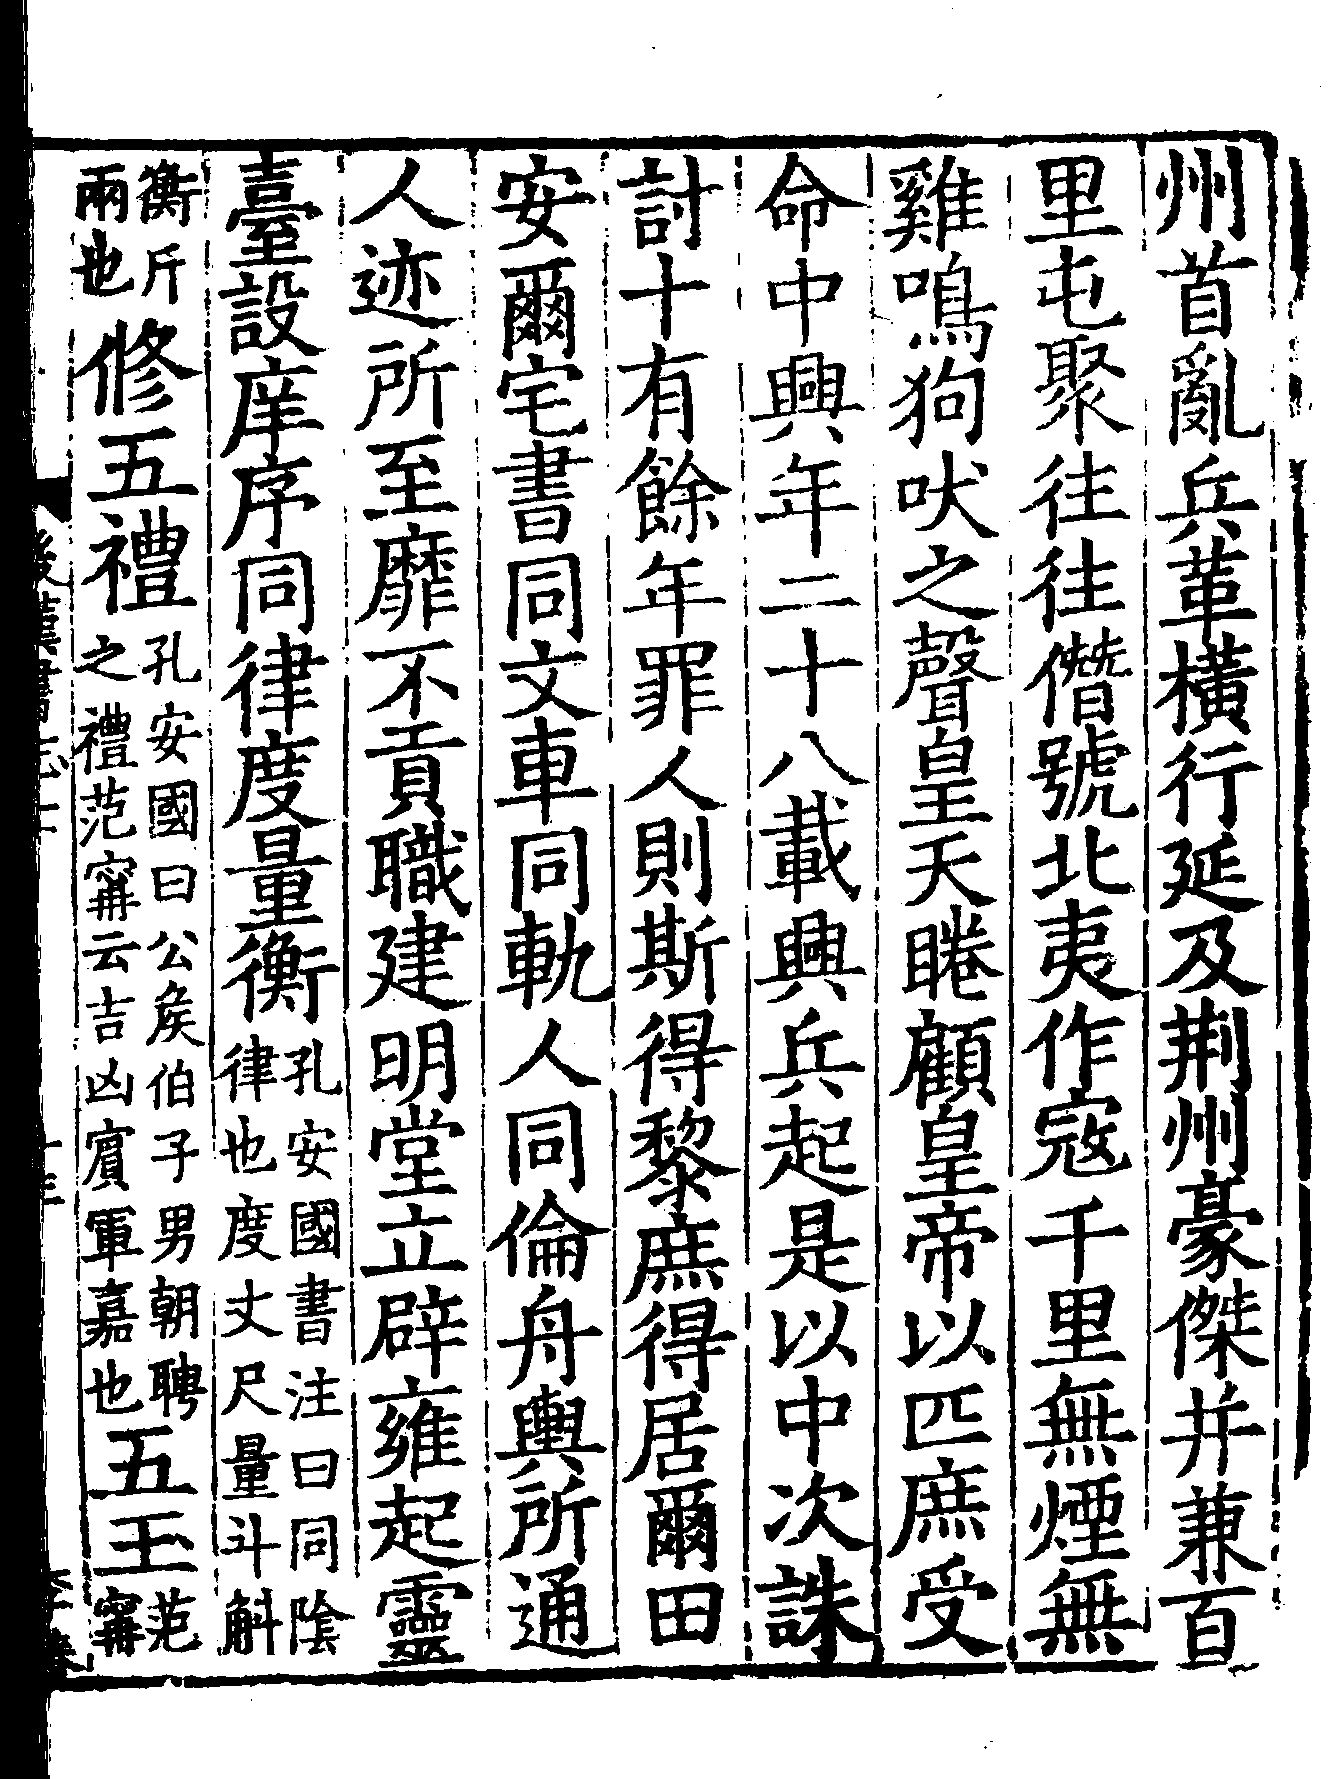 州首亂兵革橫行延及荆州豪傑并兼百
里屯聚往往僭號北夷作寇千里無煙無
雞鳴狗吠之聲皇天睠顧皇帝以匹庶受
命中興年二十八載興兵起是以中次誅
討十有餘年罪人則斯得黎庶得居爾田
安爾宅書同文車同軌人同倫舟輿所通
人迹所至靡不貢職建明堂立辟雍起靈
臺設庠序同律度量衡
孔安國書注曰同陰
律也度丈尺量斗斛
衡斤
兩也
脩五禮
孔安國曰公侯伯子男朝聘
之禮范甯云吉凶賔軍嘉也
五玉
范
甯
後漢書志